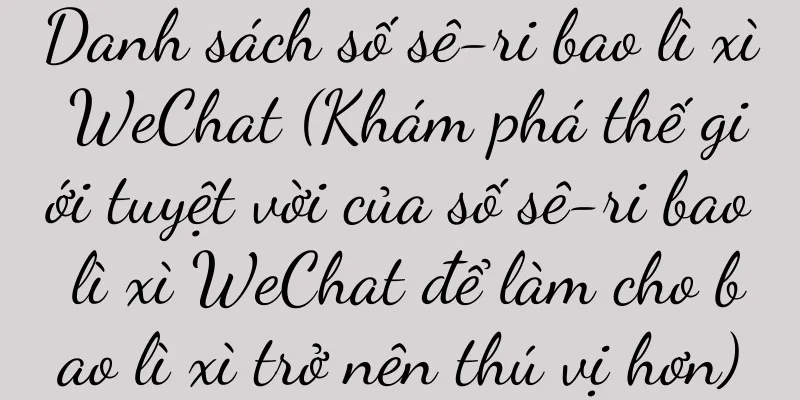 Danh sách số sê-ri bao lì xì
WeChat (Khám phá thế gi
ới tuyệt vời của số sê-ri bao
lì xì WeChat để làm cho b
ao lì xì trở nên thú vị hơn)